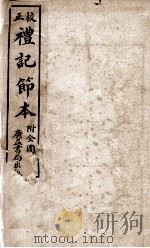 校正
禮記節本
附全圖
廣益書局出